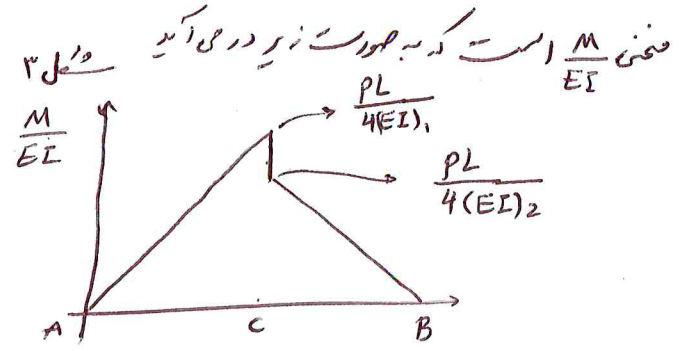 منحنی M/EI است که به صورت زیر در می آید شکل ۳
M/EI
PL/4(EI)₁
PL/4(EI)₂
A C B